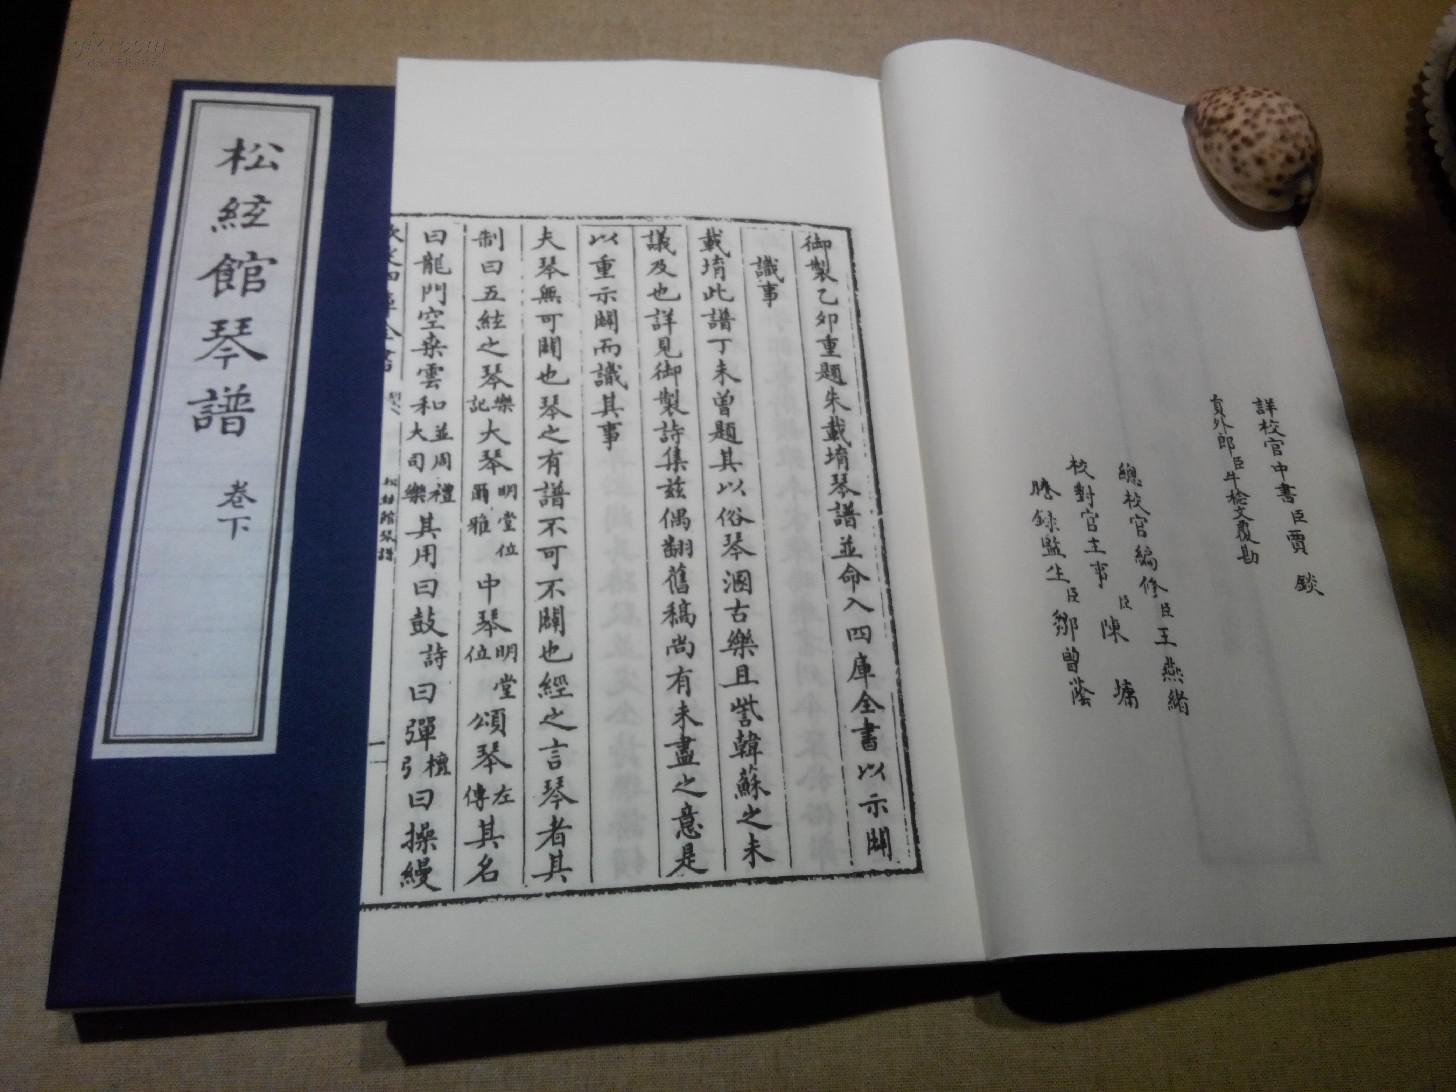 松絃館琴譜
卷下
詳校官中書臣賈錟
員外郎臣牛稔文覆勘
總校官編修臣王燕緒
校對官主事臣陳墉
謄錄監生臣鄒曾蔭
御製乙卯重題朱載堉琴譜並命入四庫全書以示闢
識事
載堉此譜丁未曾題其以俗琴溷古樂且訾韓蘇之未
議及也詳見御製詩集兹偶翻舊稿尚有未盡之意是
以重示闢而識其事
夫琴無可闢也琴之有譜不可不闢也經之言琴者其
制曰五絃之琴樂記大琴明堂位爾雅中琴明堂位頌琴左傳其名
曰龍門空桑雲和並周禮大司樂其用曰鼓詩曰彈檀引曰操縵
欽定四庫全書
松絃館琴譜
一